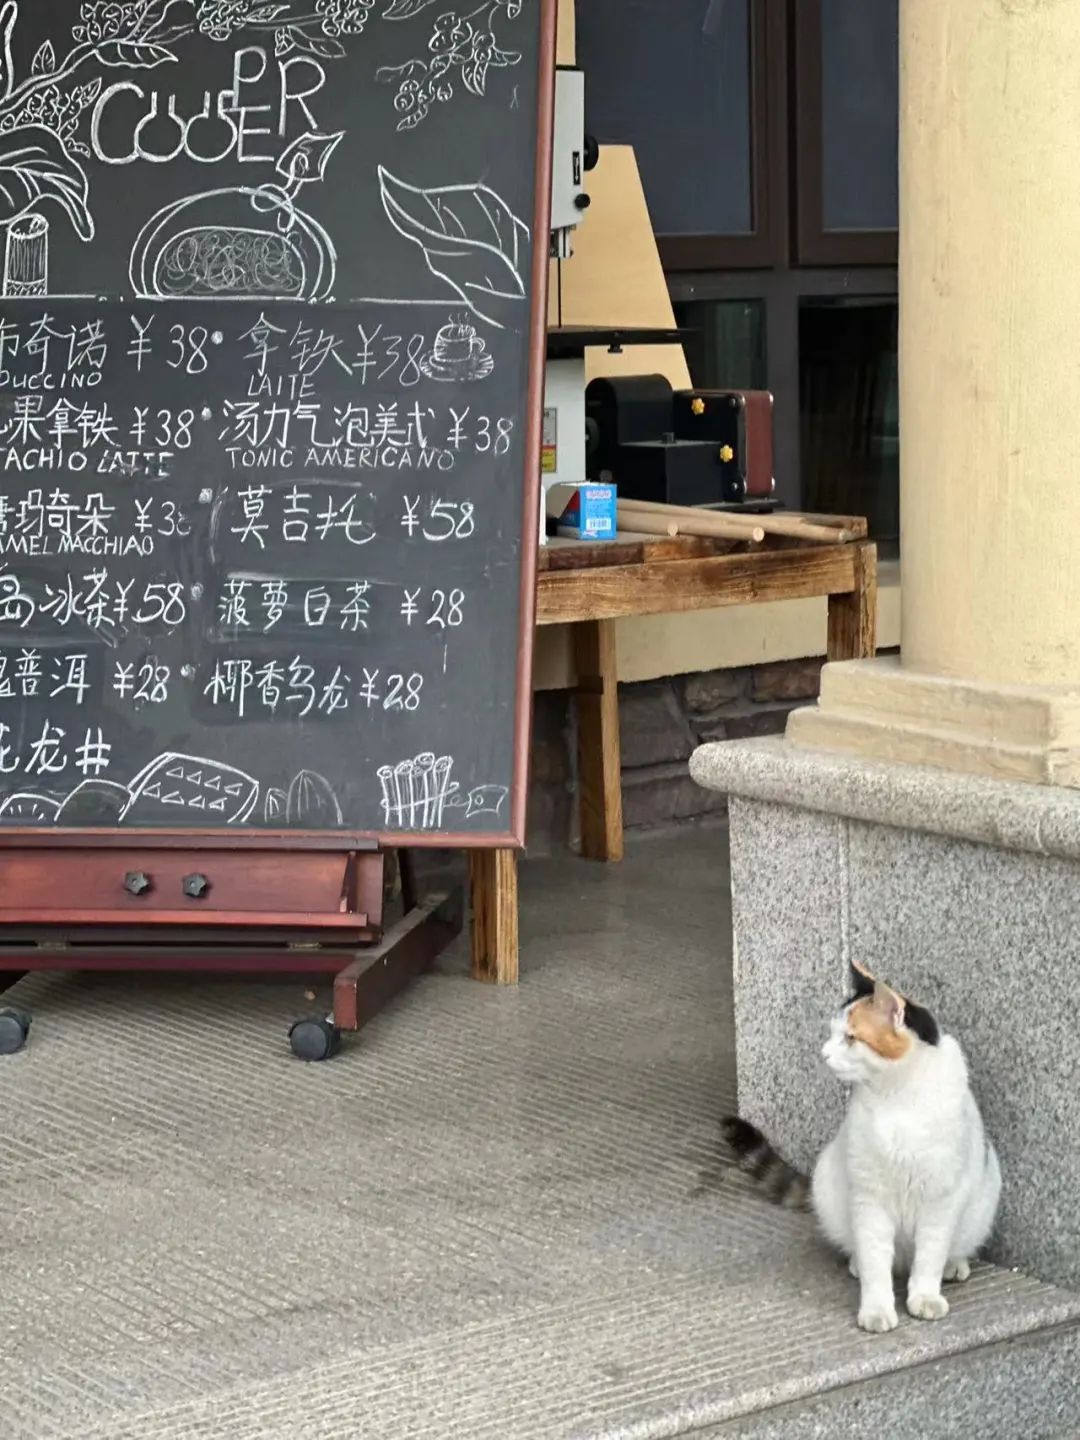 COOPER
布奇诺 ¥38 拿铁 ¥38
PUCCINO LAITE
果拿铁 ¥38 汤力气泡美式 ¥38
TACHIO LATTE TONIC AMERICANO
玛奇朵 ¥38 莫吉托 ¥58
AMEL MACCHIAO
岛冰茶 ¥58 菠萝白茶 ¥28
普洱 ¥28 椰香乌龙 ¥28
花龙井